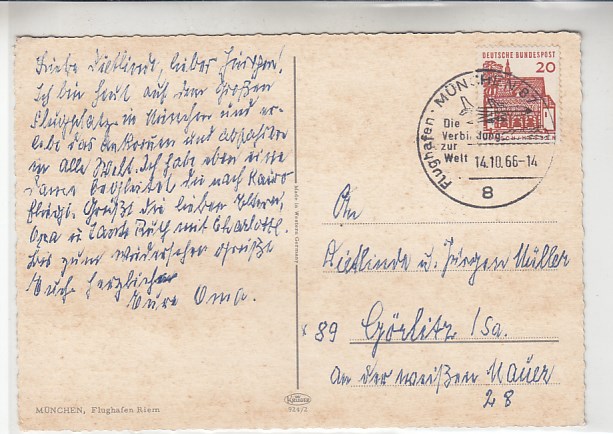 Liebe Dietlinde, lieber Jürgen!
Ich bin heut auf dem Großen
Flughafen in München und er-
lebe das Ankommen und abfahren
in alle Welt. Ich habe eben eine
Dame begleitet die nach Kairo
fliegt. Grüßt die lieben Eltern,
Opa u. Tante Ruth mit
Bis zum Wiedersehen grüßt
Euch herzlich
Eure Oma.
MÜNCHEN, Flughafen Riem
Made in Western Germany
924/2
DEUTSCHE BUNDESPOST
20
Flughafen · MÜNCHEN 87
Die
Verbindung
zur
Welt
14.10.66-14
8
An
Dietlinde u. Jürgen Müller
x 89 Görlitz /Sa.
An der weißen Mauer
28